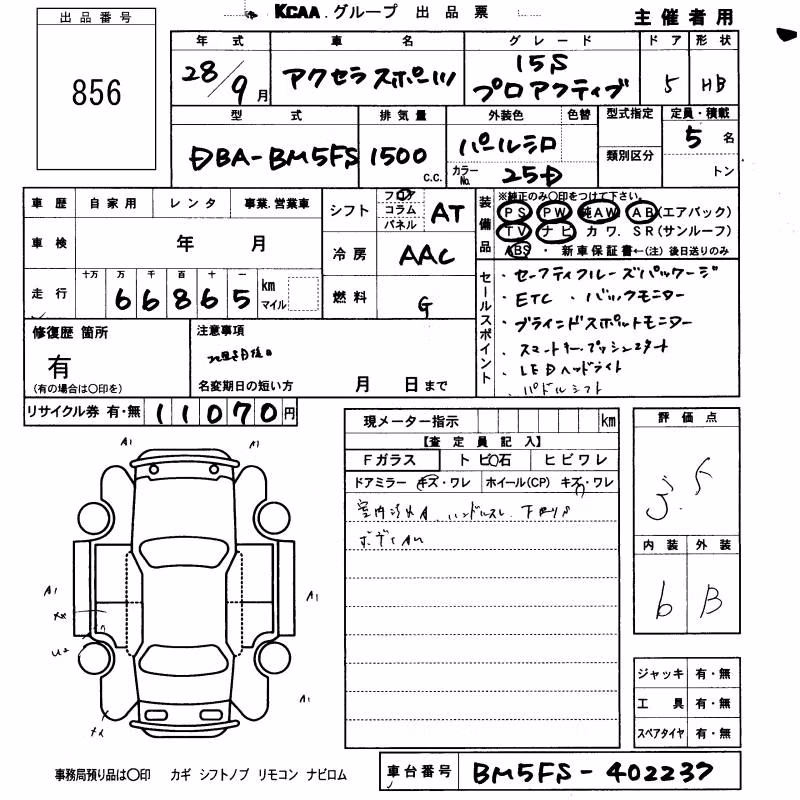 KCAA グループ 出品票
主催者用
出品番号
856
年式 車名 グレード ドア 形状
28/9月 アクセラスポーツ 15S プロアクティブ 5 HB
型式 排気量 外装色 色替 型式指定 定員・積載
DBA-BM5FS 1500 c.c. パールシロ 類別区分 5名
カラーNo. 25D トン
車歴 自家用 レンタ 事業.営業車
シフト フロア コラム パネル AT
装備品 ※純正のみ○印をつけて下さい。
PS PW 純AW AB(エアバック)
TV ナビ カワ. SR(サンルーフ)
ABS ・新車保証書←(注)後日送りのみ
車検 年 月
冷房 AAC
走行 十万 万 千 百 十 一
66865 km マイル
燃料 G
セールスポイント
・セーフティクルーズパッケージ
・ETC ・バックモニター
・ブラインドスポットモニター
・スマートキー・プッシュスタート
・LEDヘッドライト
・パドルシフト
修復歴 箇所
有
(有の場合は○印を)
注意事項
名変期日の短い方 月 日まで
リサイクル券 有・無 11070円
現メーター指示 km
【査定員記入】
Fガラス トビ石 ヒビワレ
ドアミラー キズ・ワレ ホイール(CP) キズ・ワレ
評価点
3.5
内装 外装
b B
A1 A1
A1 A1
A1
ジャッキ 有・無
工具 有・無
スペアタイヤ 有・無
事務局預り品は○印 カギ シフトノブ リモコン ナビロム
車台番号 BM5FS-402237